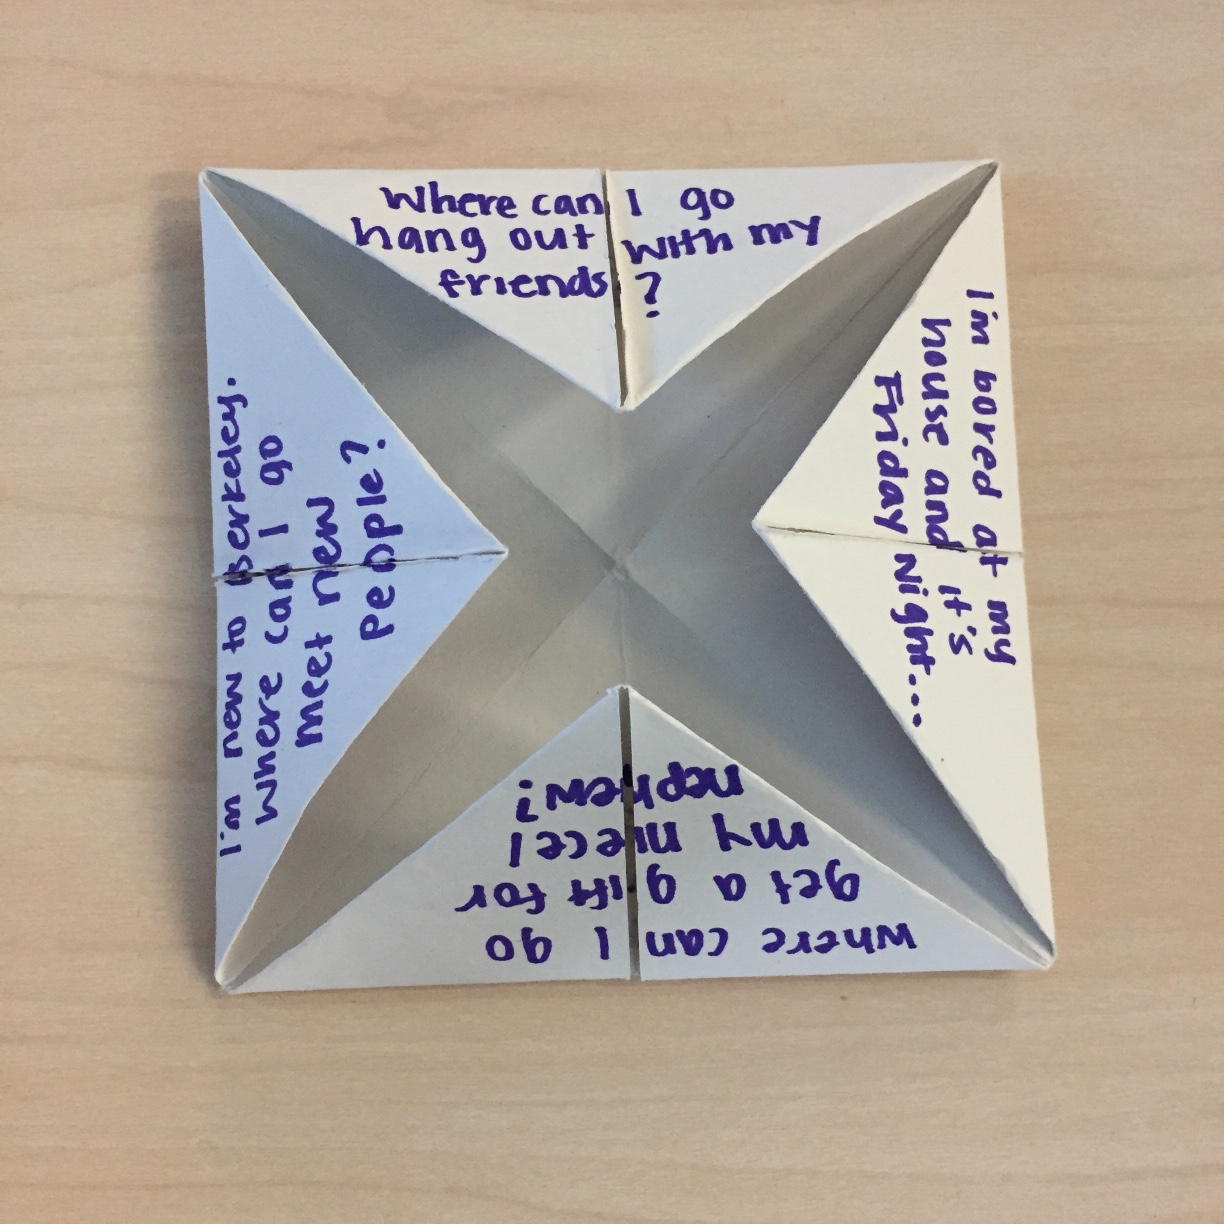 Where can I go
hang out with my
friends?
I'm bored at my
house and it's
Friday Night...
where can I go
get a gift for
my niece/
nephew?
I'm new to Berkeley.
where can I go
meet new
people?